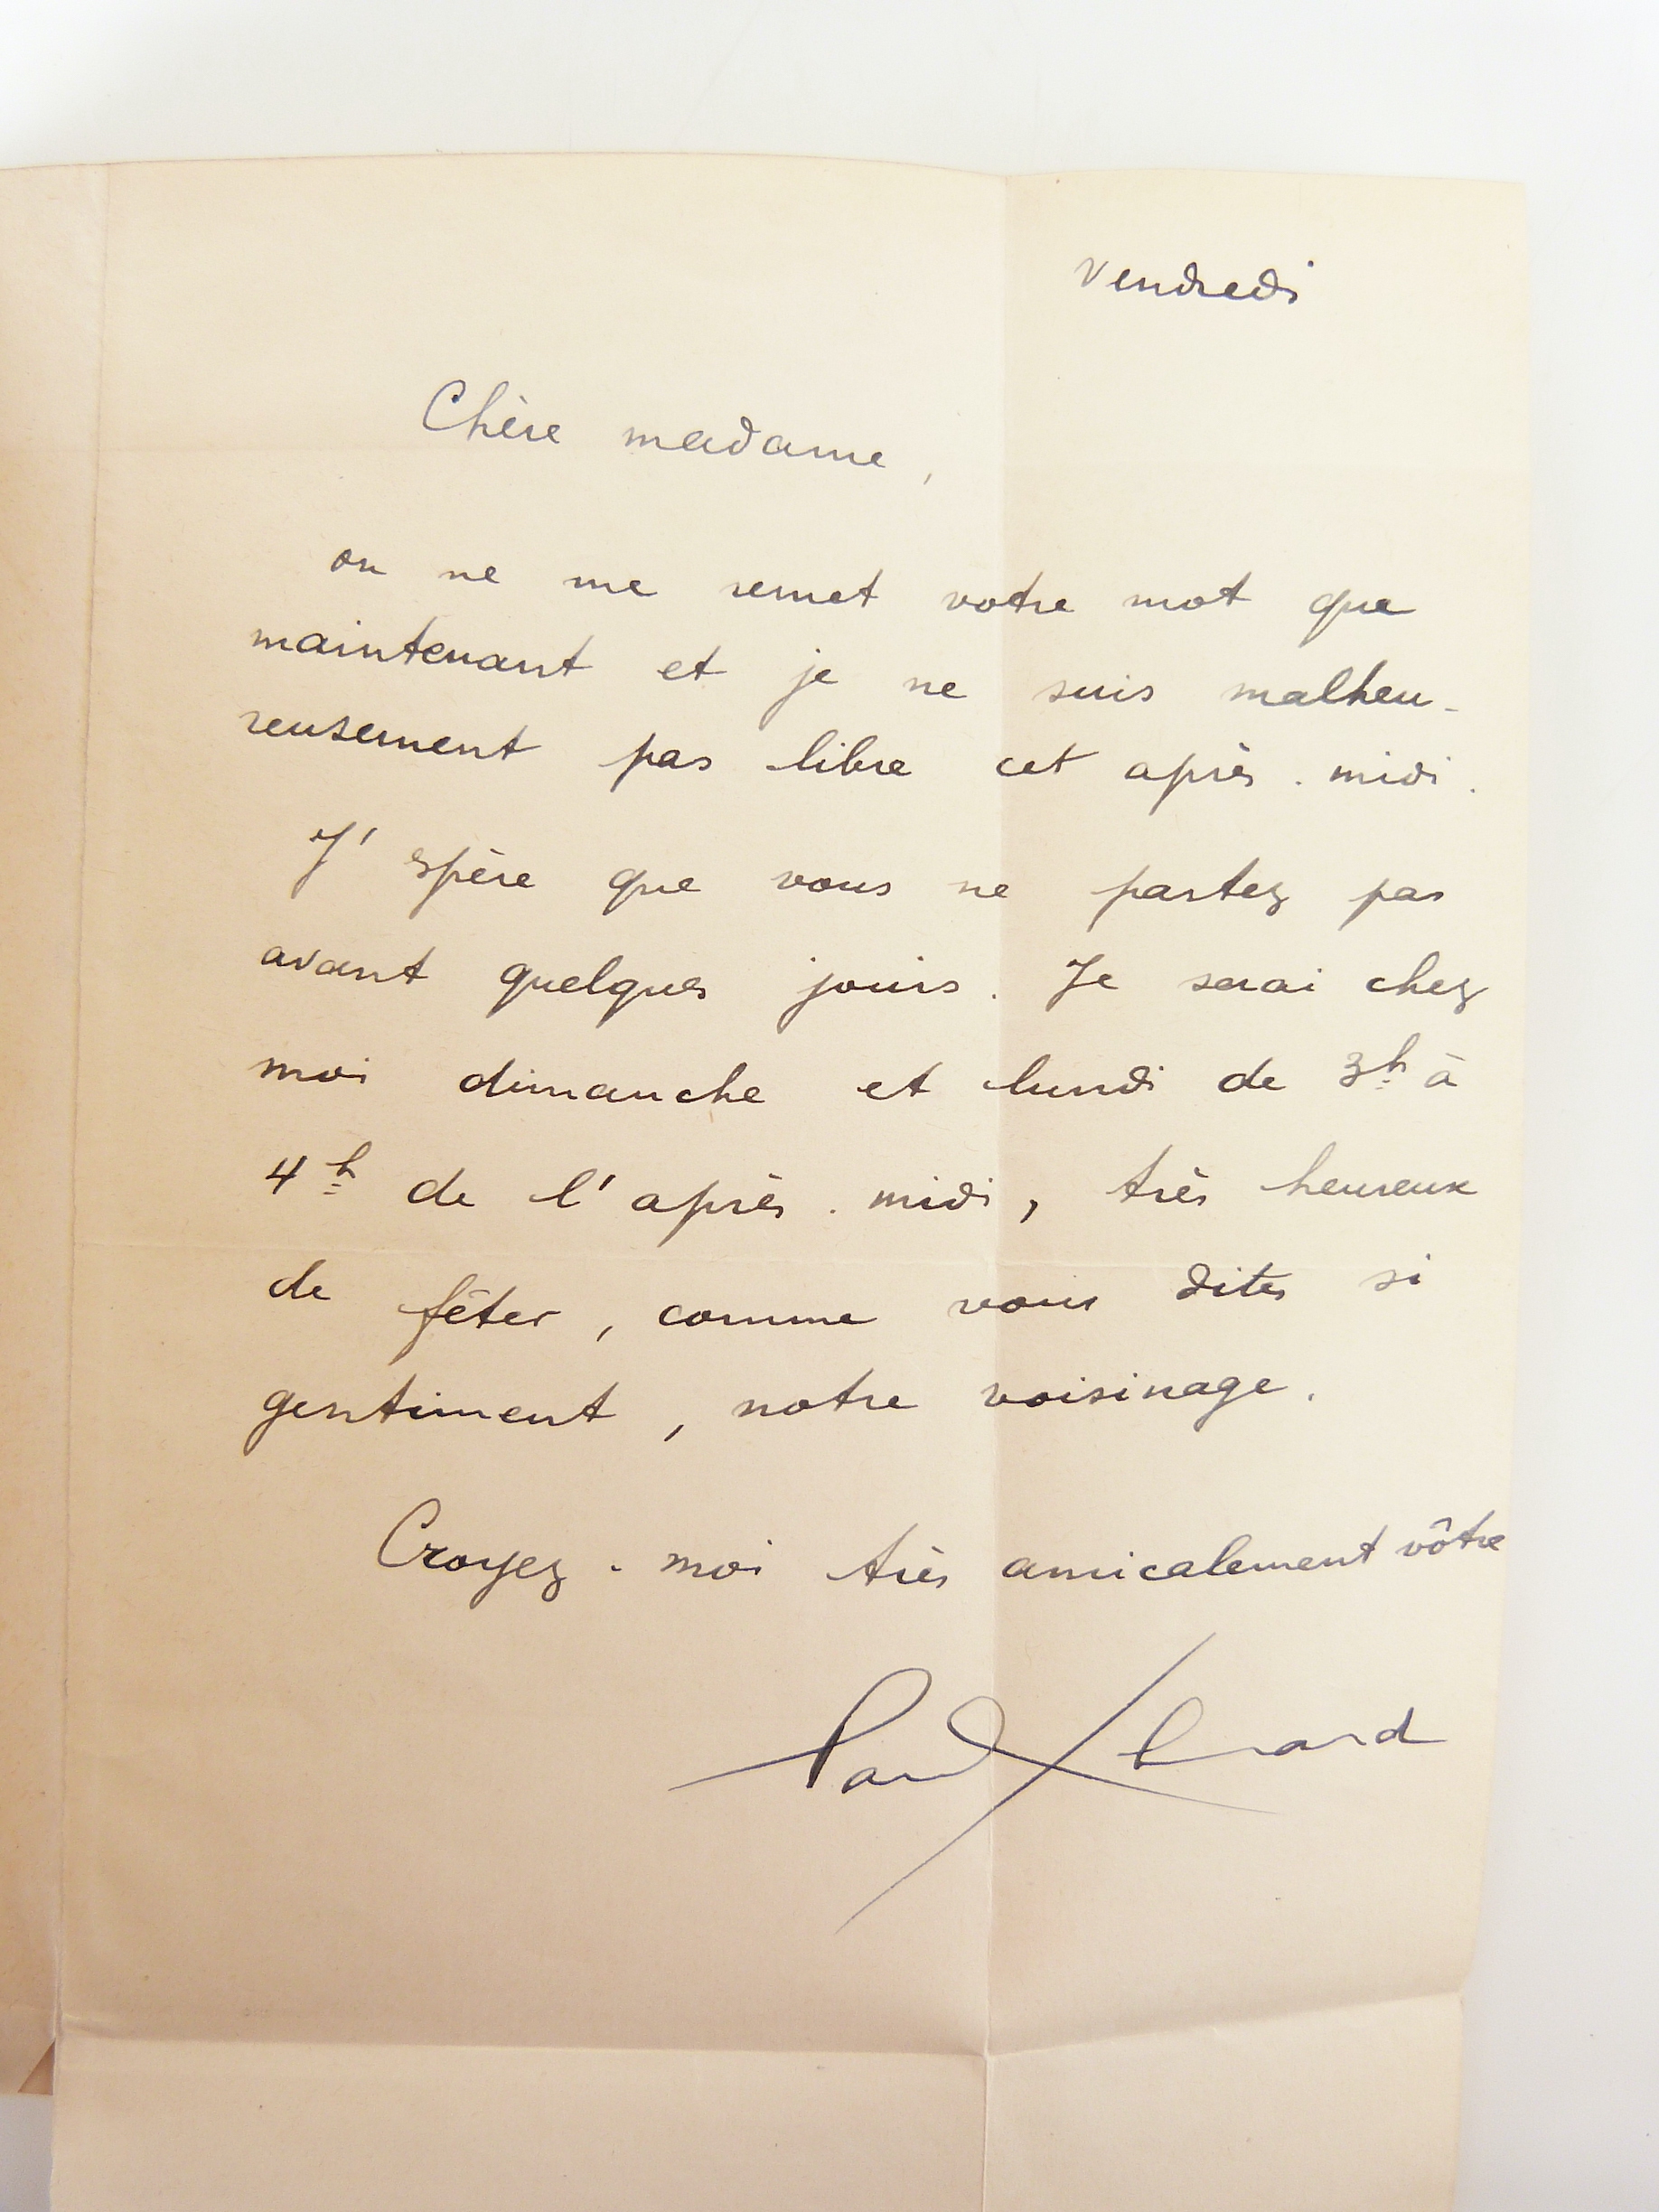 vendredi
Chère madame,
on ne me remet votre mot que
maintenant et je ne suis malheu-
reusement pas libre cet après-midi.
J'espère que vous ne partez pas
avant quelques jours. Je serai chez
moi dimanche et lundi de 3h à
4h de l'après-midi, très heureux
de fêter, comme vous dites si
gentiment, notre voisinage.
Croyez-moi très amicalement vôtre
Paul Eluard